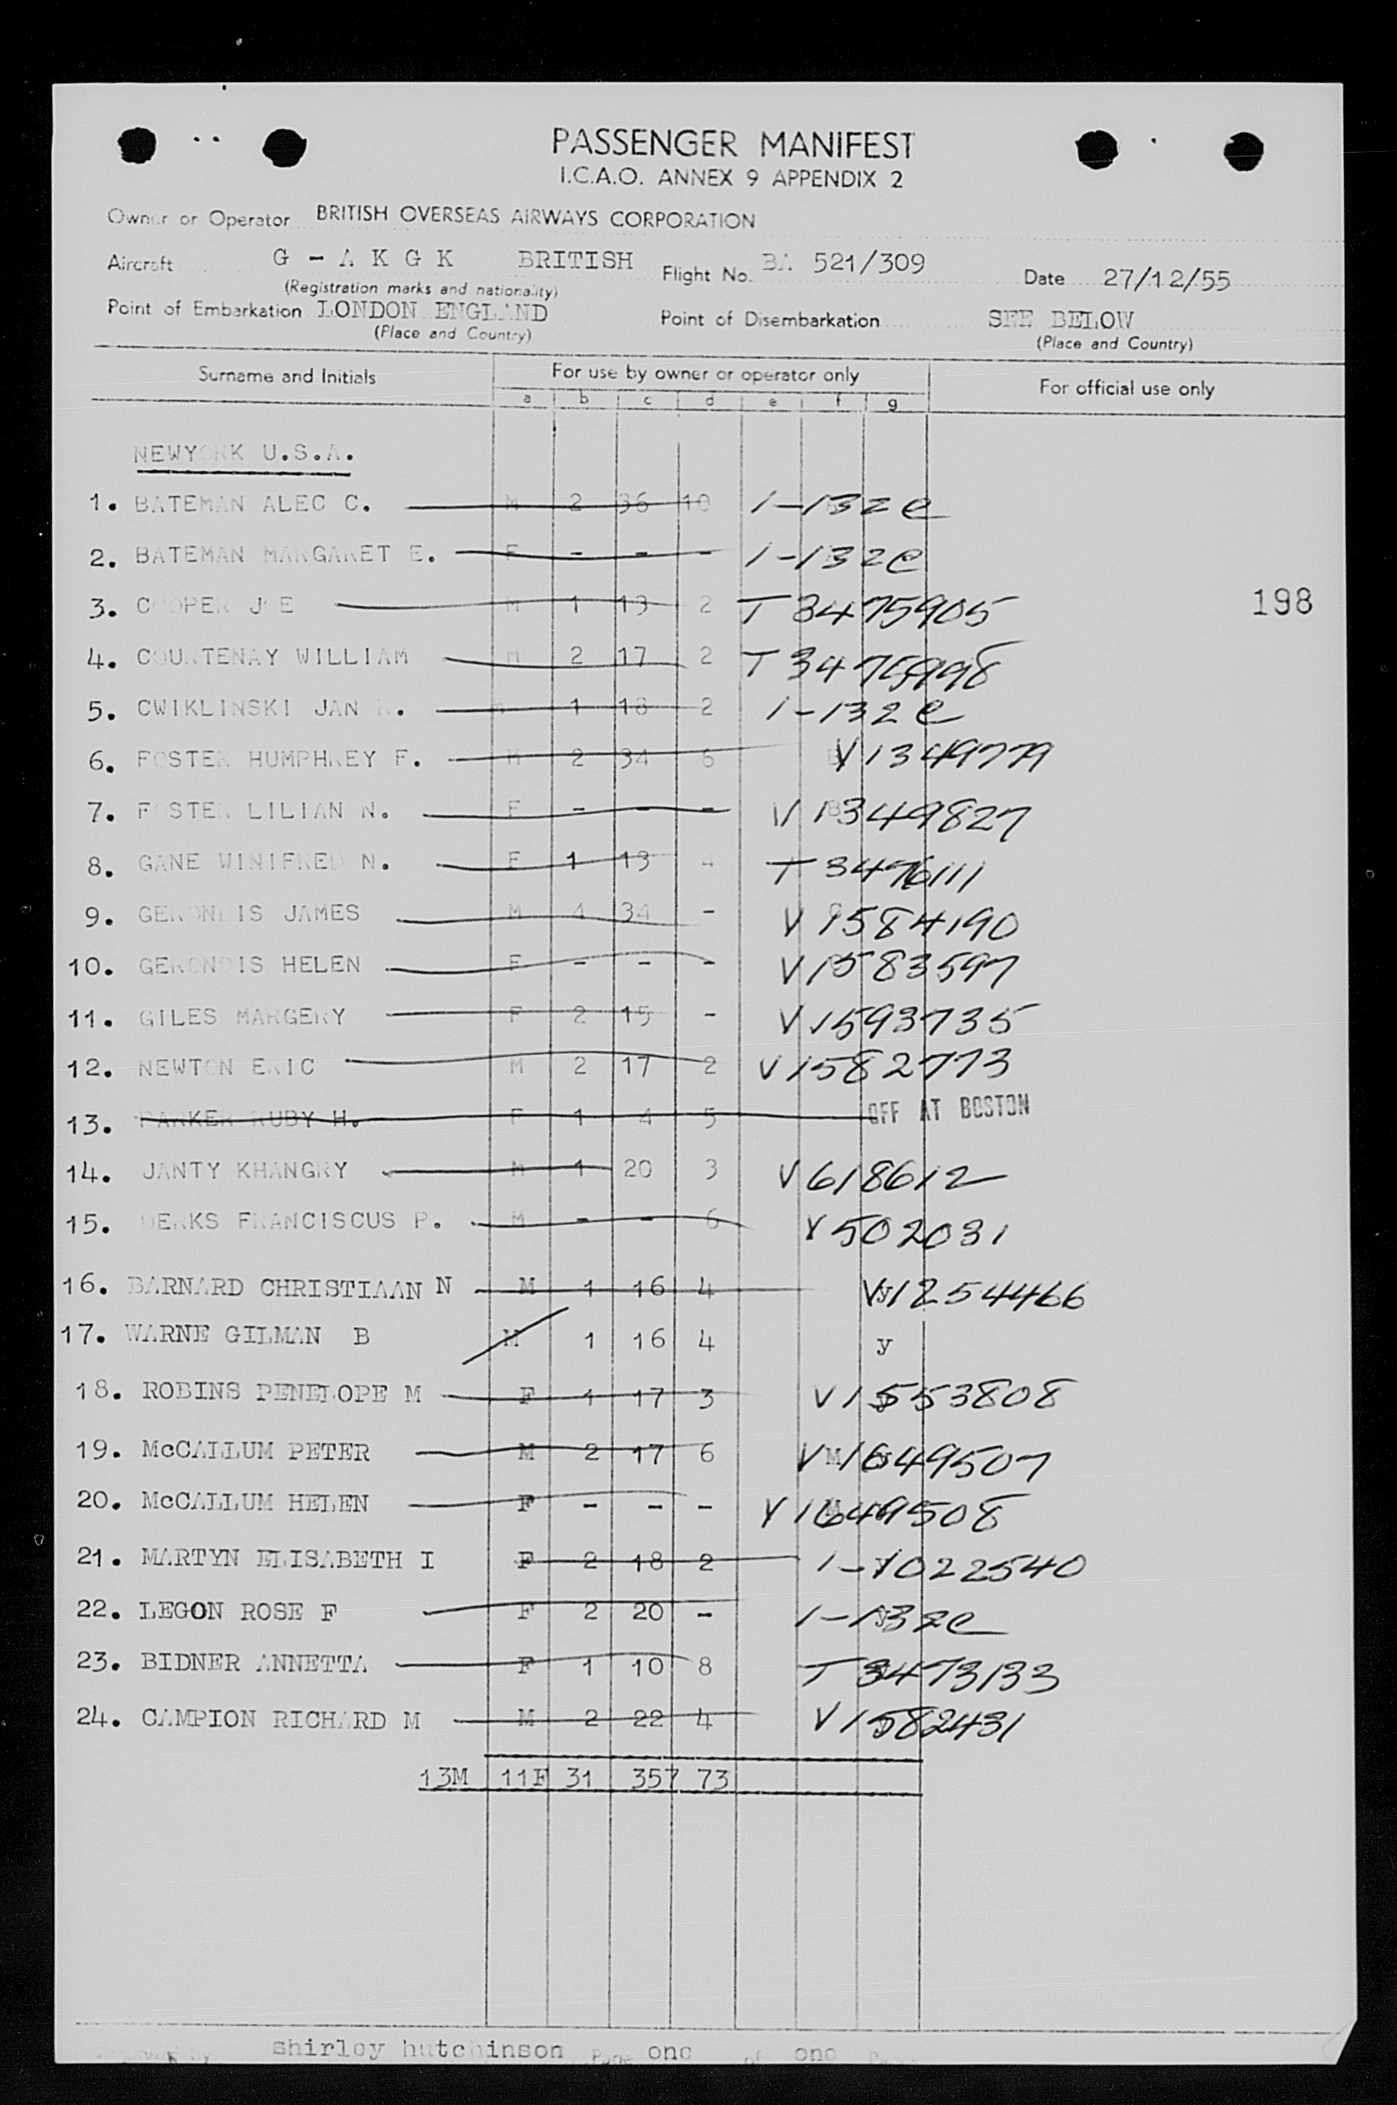 PASSENGER MANIFEST
I.C.A.O. ANNEX 9 APPENDIX 2
Owner or Operator BRITISH OVERSEAS AIRWAYS CORPORATION
Aircraft G - A K G K BRITISH Flight No. BA 521/309 Date 27/12/55
(Registration marks and nationality)
Point of Embarkation LONDON ENGLAND Point of Disembarkation SEE BELOW
(Place and Country) (Place and Country)
Surname and Initials For use by owner or operator only For official use only
a b c d e f g
NEWYORK U.S.A.
1. BATEMAN ALEC C. M 2 36 10 1-132e
2. BATEMAN MARGARET E. F - - - 1-132e
3. COOPER JOE M 1 13 2 T 3475905 198
4. COURTENAY WILLIAM M 2 17 2 T 3475998
5. CWIKLINSKI JAN . M 1 18 2 1-132e
6. FOSTER HUMPHREY F. M 2 34 6 V1349779
7. FOSTER LILIAN N. F - - - V1349827
8. GANE WINIFRED N. F 1 13 4 T 3476111
9. GERONDIS JAMES M 4 34 - V1584190
10. GERONDIS HELEN F - - - V1583597
11. GILES MARGERY F 2 15 - V1593735
12. NEWTON ERIC M 2 17 2 V1582773
13. PARKER RUBY H. F 1 4 5 OFF AT BOSTON
14. JANTY KHANGRY M 1 20 3 V618612
15. DERKS FRANCISCUS P. M - - 6 V502031
16. BARNARD CHRISTIAAN N M 1 16 4 y V1254466
17. WARNE GILMAN B M 1 16 4 y
18. ROBINS PENELOPE M F 1 17 3 V1553808
19. McCALLUM PETER M 2 17 6 M V1649507
20. McCALLUM HELEN F - - - M V1649508
21. MARTYN ELISABETH I F 2 18 2 y 1-1022540
22. LEGON ROSE F F 2 20 - y 1-132e
23. BIDNER ANNETTA F 1 10 8 T 3473133
24. CAMPION RICHARD M M 2 22 4 V1582431
13M 11F 31 357 73
shirley hutchinson Page one of one